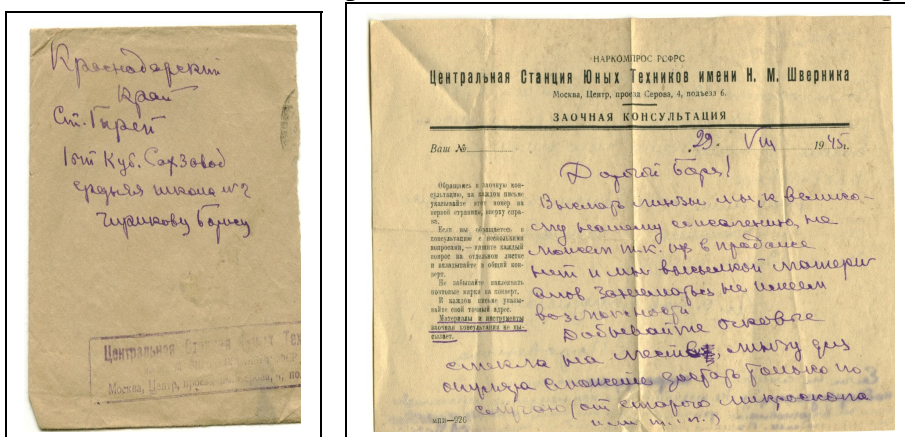 Краснодарский
Край
Ст. Гирей
1ый Куб. СахЗавод
средняя школа №2
Чирикову Борису
Центральная Станция Юных Тех
Москва, Центр,
НАРКОМПРОС РСФРС
Центральная Станция Юных Техников имени Н. М. Шверника
Москва, Центр, проезд Серова, 4, подъезд 6.
ЗАОЧНАЯ КОНСУЛЬТАЦИЯ
Ваш №
29. VIII 1945г.
Обращаясь в заочную кон-
сультацию, на каждом письме
указывайте этот номер на
первой странице, вверху спра-
ва.
Если вы обращаетесь в
консультацию с несколькими
вопросами, — пишите каждый
вопрос на отдельном листке
и вкладывайте в общий кон-
верт.
Не забывайте наклеивать
почтовые марки на конверт.
В каждом письме указы-
вайте свой точный адрес.
Материалы и инструменты
заочная консультация не вы-
сылает.
МПП—926
Дорогой Боря!
Выслать линзы мы, к велико-
му нашему сожалению, не
можем т.к. их в продаже
нет и мы высылкой матери
алов заниматься не имеем
возможности
Добывайте очковые
стекла на месте, линзу для
окуляра сможете достать только по
случаю (от старого микроскопа
или т. п.)